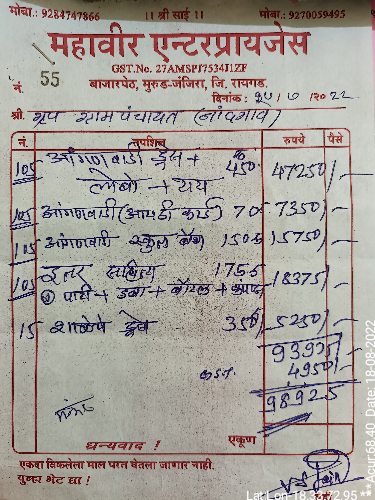 मोबा.: 9284747866 ।। श्री साई ।। मोबा.: 9270059495
महावीर एन्टरप्रायजेस
GST.No. 27AMSPJ7534J1ZF
नं. 55 बाजारपेठ, मुरुड-जंजिरा, जि. रायगड.
दिनांक : /७/२०22
श्री. ग्रुप ग्रामपंचायत (नांदगाव)
नं. तपशिल रुपये पैसे
105 आंगणवाडी ड्रेस + 450 47250/-
105 आंगणवाडी (आयडी कार्ड) 70 7350/-
105 आंगणवाडी स्कुल बॅग 150 15750/-
105 इतर साहित्य 175 18375/-
पाटी + डबा + बॉटल +
15 ड्रेस 350/ 5250/-
93975/-
4950/-
98925
धन्यवाद ! एकूण
एकवा विकलेला माल परत घेतला जाणार नाही.
पुन्हा भेट द्या !
Lat,Lon: 18. 72.95
**Acur:68.40 Date:18-08-2022